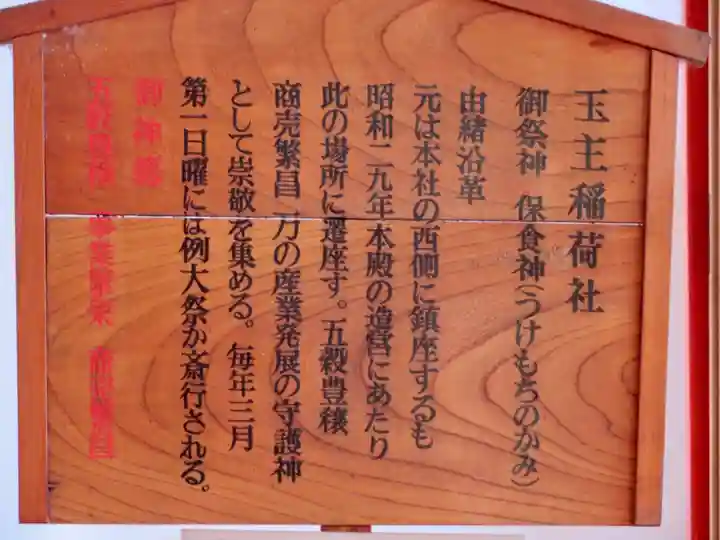 玉主稲荷社
御祭神　保食神(うけもちのかみ)
由緒沿革
元は本社の西側に鎮座するも
昭和二九年本殿の造営にあたり
此の場所に遷座す。五穀豊穣
商売繁昌　万の産業発展の守護神
として崇敬を集める。毎年三月
第一日曜には例大祭が斎行される。
御神徳
五穀豊穣　事業繁栄　商売繁昌